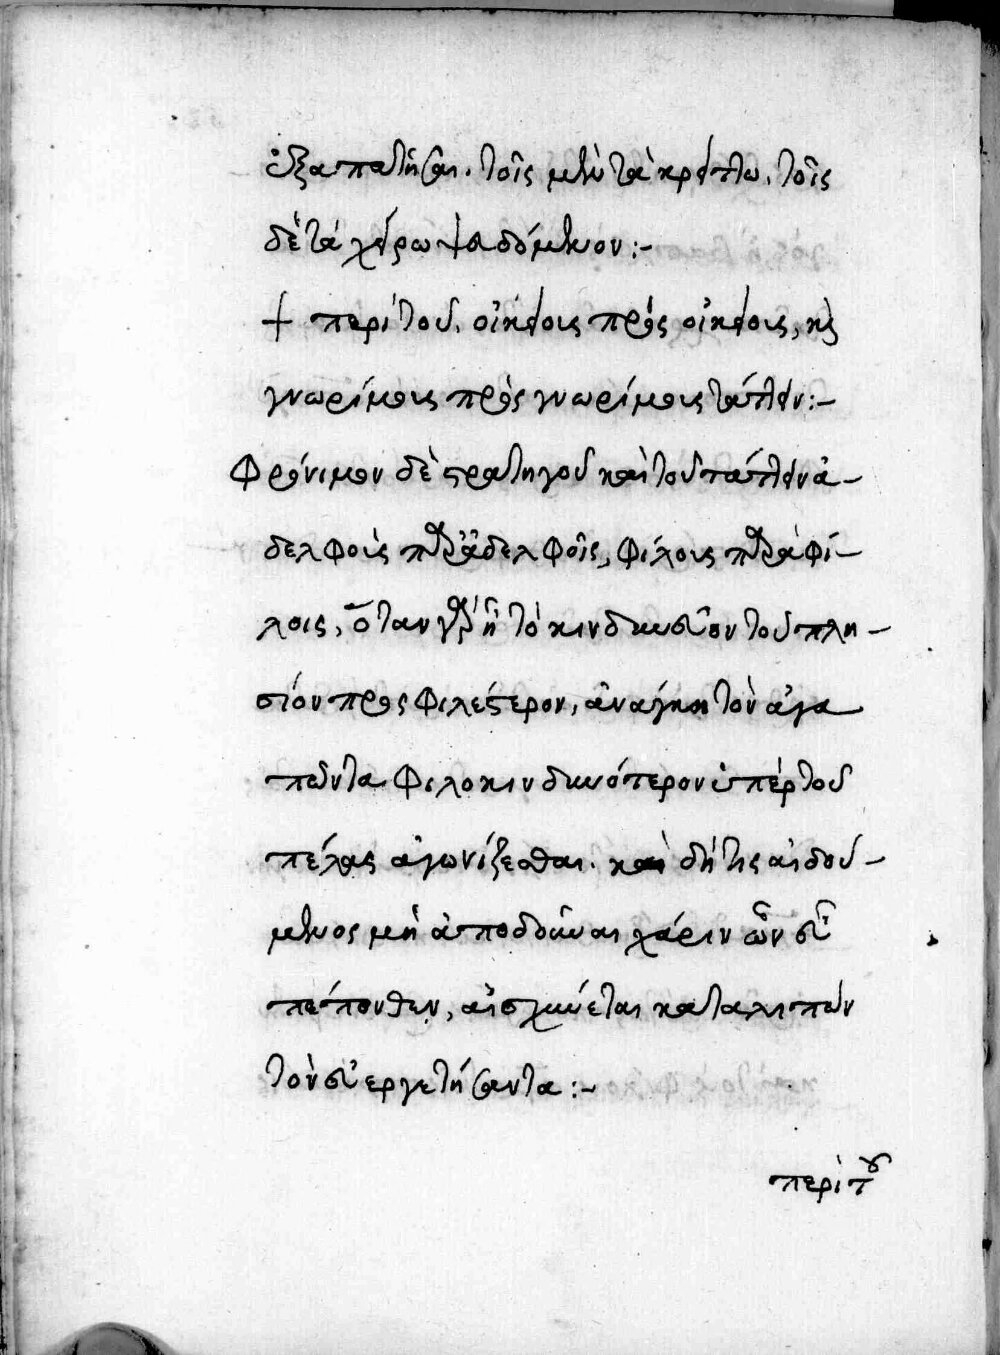 ἐξαπατῆσαι. τοῖς μὲν τὰ κρείττω, τοῖς
δὲ τὰ χείρω ψευδόμενον :-
+ περὶ τοῦ, οἰκείους πρὸς οἰκείους, κὶ
γνωρίμους πρὸς γνωρίμους τάττειν :-
Φρόνιμον δὲ στρατηγοῦ καὶ τοῦ τάττειν ἀ-
δελφοὺς παρ' ἀδελφοῖς, φίλους παρὰ φί-
λοις, ὅταν γὰρ ᾖ τὸ κινδυνεῦον τοῦ πλη-
σίον προσφιλέστερον, ἀνάγκη τὸν ἀγα
πῶντα φιλοκινδυνότερον ὑπὲρ τοῦ
πέλας ἀγωνίζεσθαι. καὶ δή τις αἰδού-
μενος μὴ ἀποδοῦναι χάριν ὧν εὖ
πέπονθεν, αἰσχύνεται καταλιπὼν
τὸν εὐεργετήσαντα :-
περὶ τοῦ